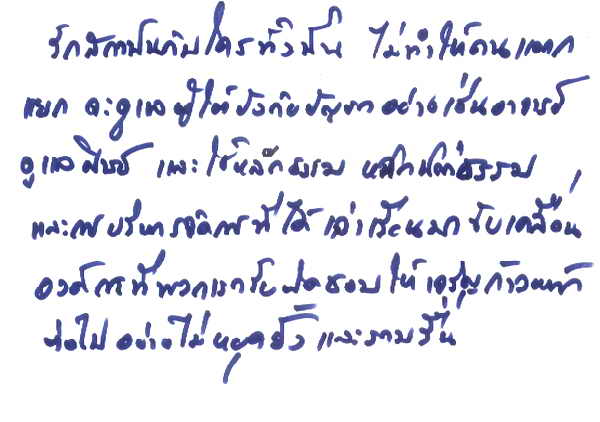 รักสถาบันกับใครทั่วนั้น ไม่ทำให้คนแตก
แยก จะดูแลผู้ใต้บังคับบัญชา อย่างเช่นอาจารย์
ดูแลศิษย์ และใช้หลักธรรม หลักนิติธรรม
และการบริหารจัดการที่ได้เล่าเรียนมา ขับเคลื่อน
องค์การที่พวกเรารับผิดชอบ ให้เจริญก้าวหน้า
ต่อไป อย่างไม่หยุดยั้ง และราบรื่น